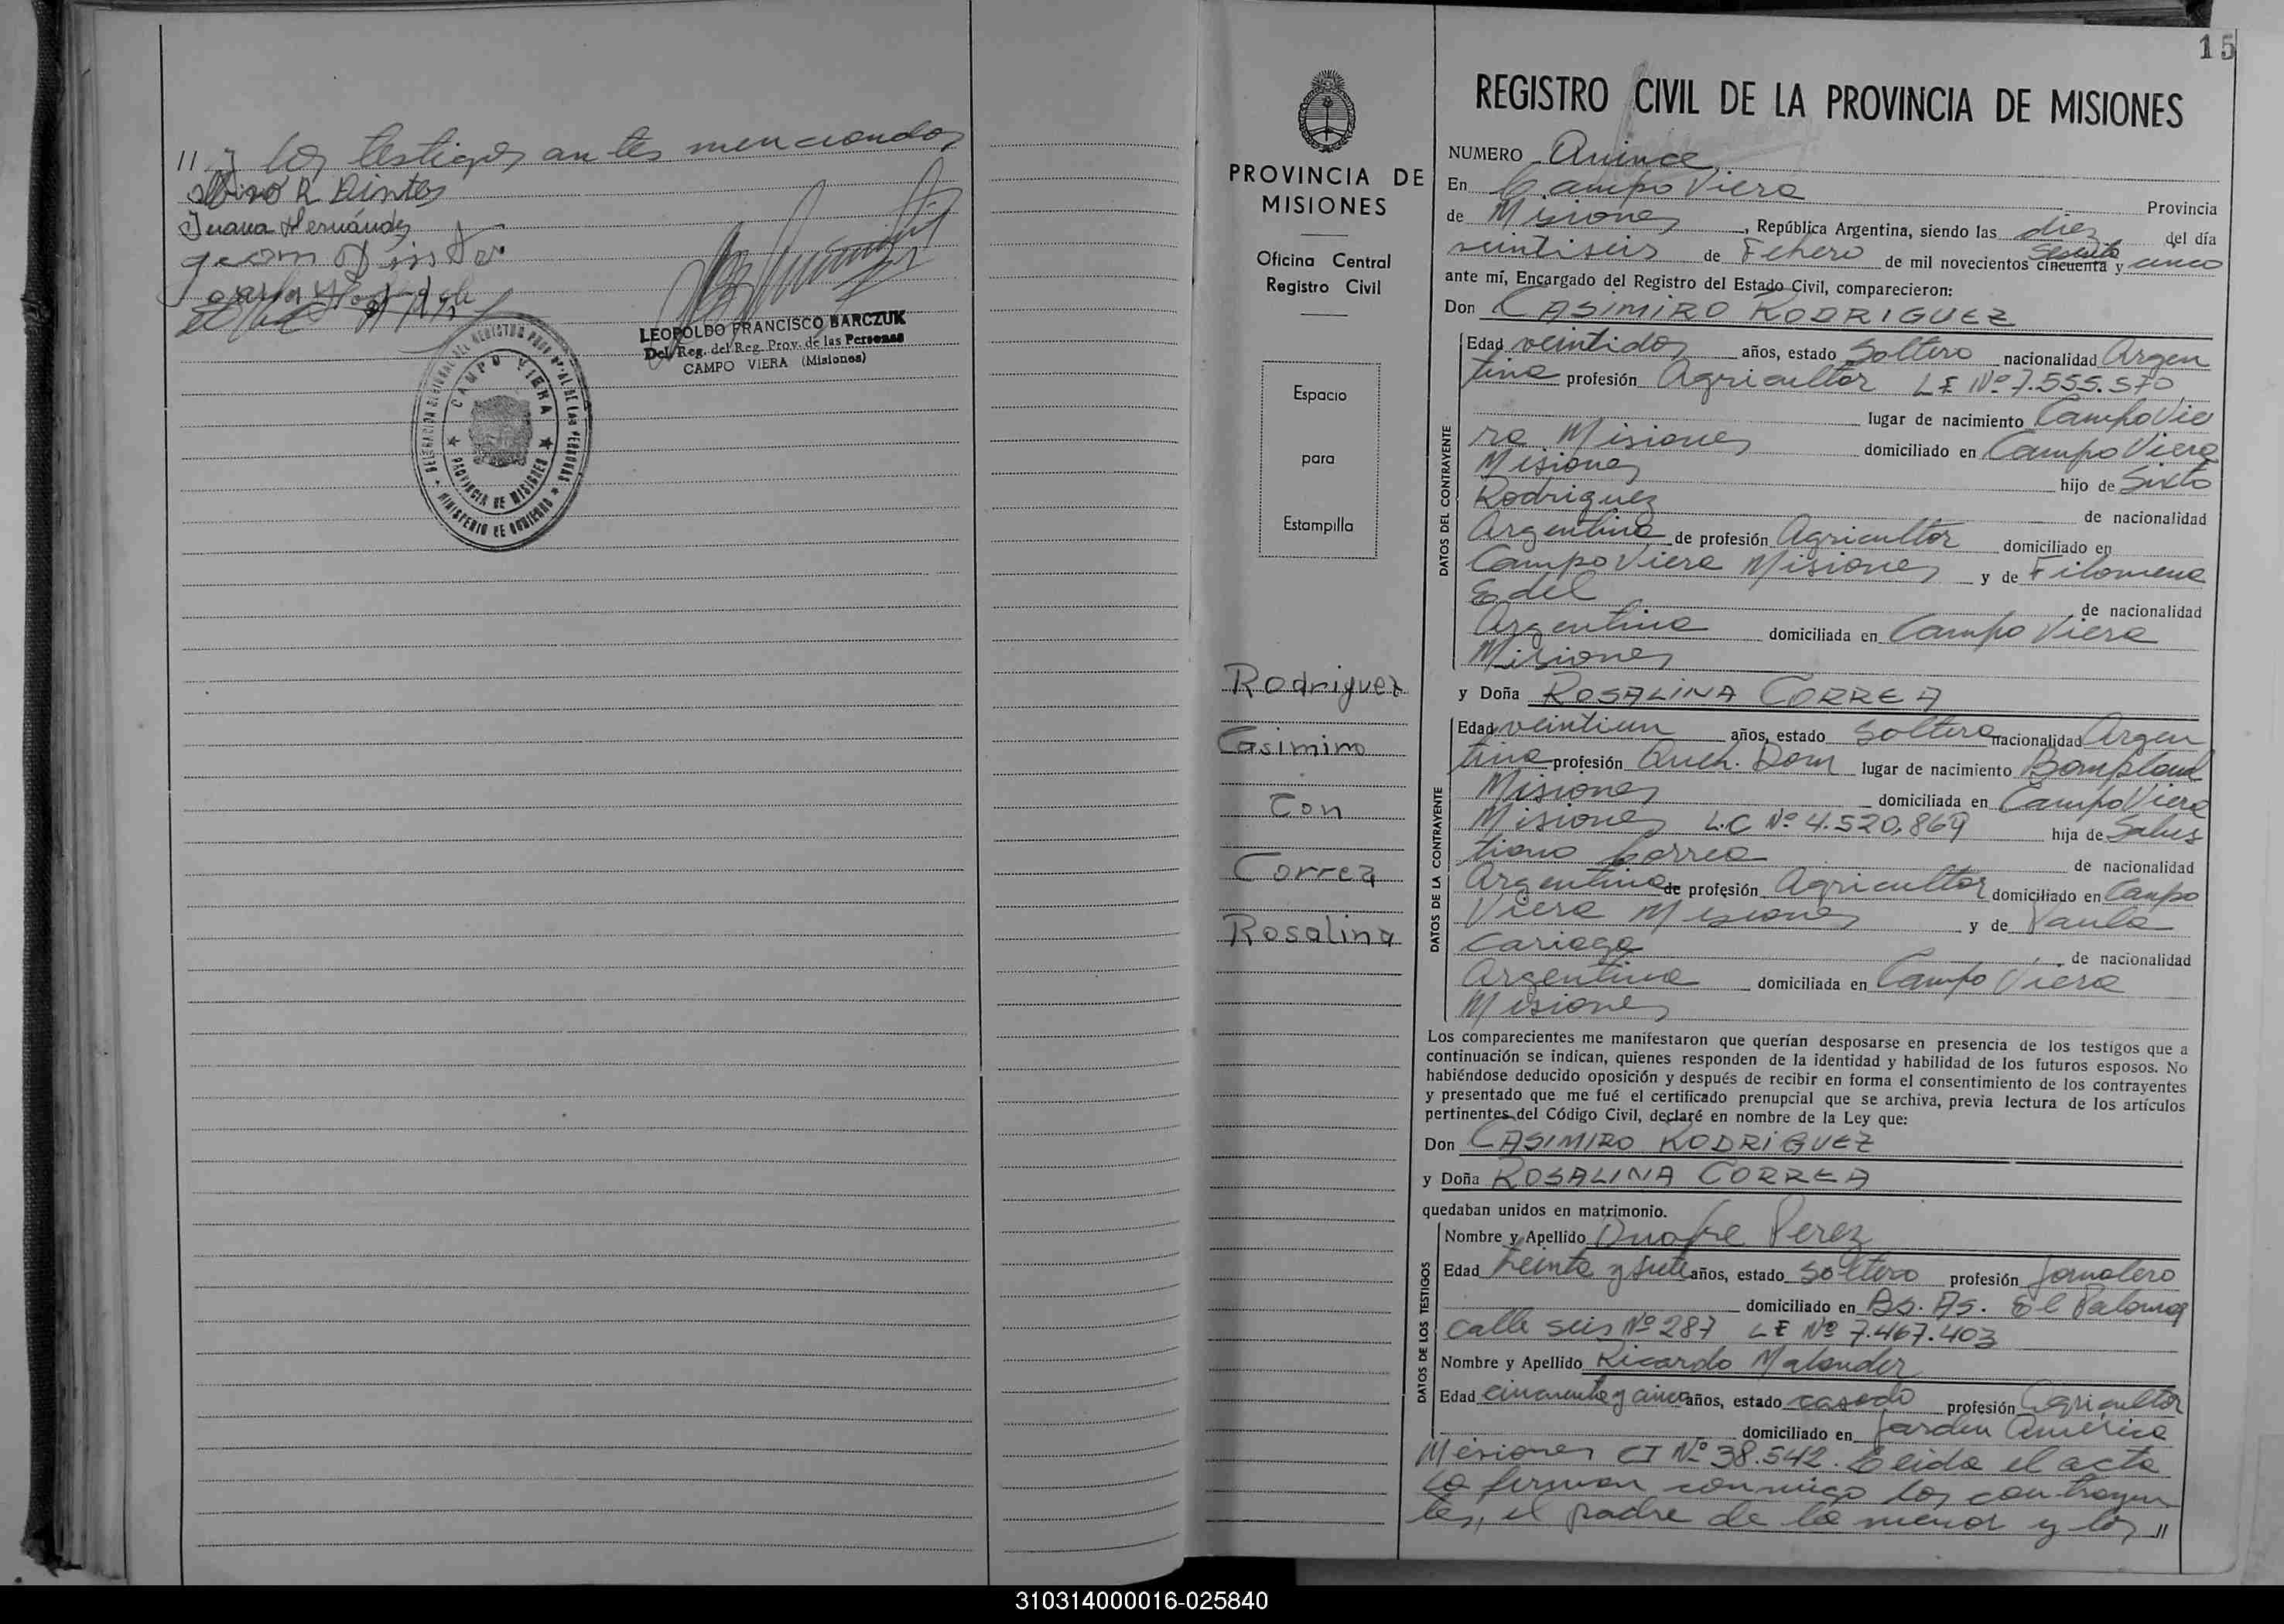 // y los testigos antes mencionados
Juana Hernández
LEOPOLDO FRANCISCO BARCZUK
Del. Reg. del Reg. Prov. de las Personas
CAMPO VIERA (Misiones)
CAMPO VIERA
PROVINCIA DE MISIONES
MINISTERIO DE GOBIERNO
15
PROVINCIA DE
MISIONES
Oficina Central
Registro Civil
Espacio
para
Estampilla
Rodriguez
Casimiro
Con
Correa
Rosalina
REGISTRO CIVIL DE LA PROVINCIA DE MISIONES
NUMERO Quince
En Campo Viera Provincia
de Misiones, República Argentina, siendo las diez del día
veintiseis de Febrero de mil novecientos cincuenta sesenta y cinco
ante mí, Encargado del Registro del Estado Civil, comparecieron:
Don CASIMIRO RODRIGUEZ
DATOS DEL CONTRAYENTE
Edad veintidos años, estado Soltero nacionalidad Argen
tina profesión Agricultor LE Nº 7.555.570
lugar de nacimiento Campo Vie
ra Misiones domiciliado en Campo Viera
Misiones hijo de Sixto
Rodriguez de nacionalidad
Argentina de profesión Agricultor domiciliado en
Campo Viera Misiones y de Filomena
Edel de nacionalidad
Argentina domiciliada en Campo Viera
Misiones
y Doña ROSALINA CORREA
DATOS DE LA CONTRAYENTE
Edad veintiun años, estado Soltera nacionalidad Argen
tina profesión Queh. Dom lugar de nacimiento Bompland
Misiones domiciliada en Campo Viera
Misiones L.C Nº 4.520.869 hija de Salus
tiano Correa de nacionalidad
Argentina de profesión Agricultor domiciliado en Campo
Viera Misiones y de Paula
Cariaga de nacionalidad
Argentina domiciliada en Campo Viera
Misiones
Los comparecientes me manifestaron que querían desposarse en presencia de los testigos que a
continuación se indican, quienes responden de la identidad y habilidad de los futuros esposos. No
habiéndose deducido oposición y después de recibir en forma el consentimiento de los contrayentes
y presentado que me fué el certificado prenupcial que se archiva, previa lectura de los artículos
pertinentes del Código Civil, declaré en nombre de la Ley que:
Don CASIMIRO RODRIGUEZ
y Doña ROSALINA CORREA
quedaban unidos en matrimonio.
DATOS DE LOS TESTIGOS
Nombre y Apellido Onofre Perez
Edad treinta y siete años, estado Soltero profesión Jornalero
domiciliado en Bs. As. El Palomar
calle seis Nº 287 LE Nº 7.467.403
Nombre y Apellido Ricardo Malender
Edad cincuenta y cinco años, estado casado profesión Agricultor
domiciliado en Jardin America
Misiones CI Nº 38.542. Leida el acta
la firman conmigo los contrayen
tes, el padre de la menor y los //
310314000016-025840